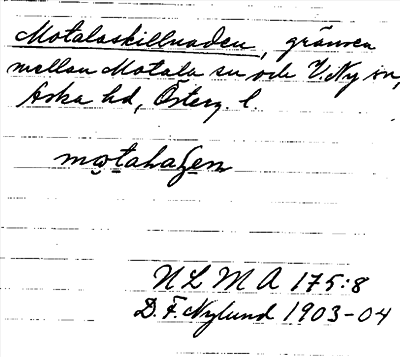 Motalaskillnaden, gränsen
mellan Motala sn och V. Ny sn,
Aska hd, Österg. l.
motahagen
N L M A 175:8
D. F. Nylund 1903-04